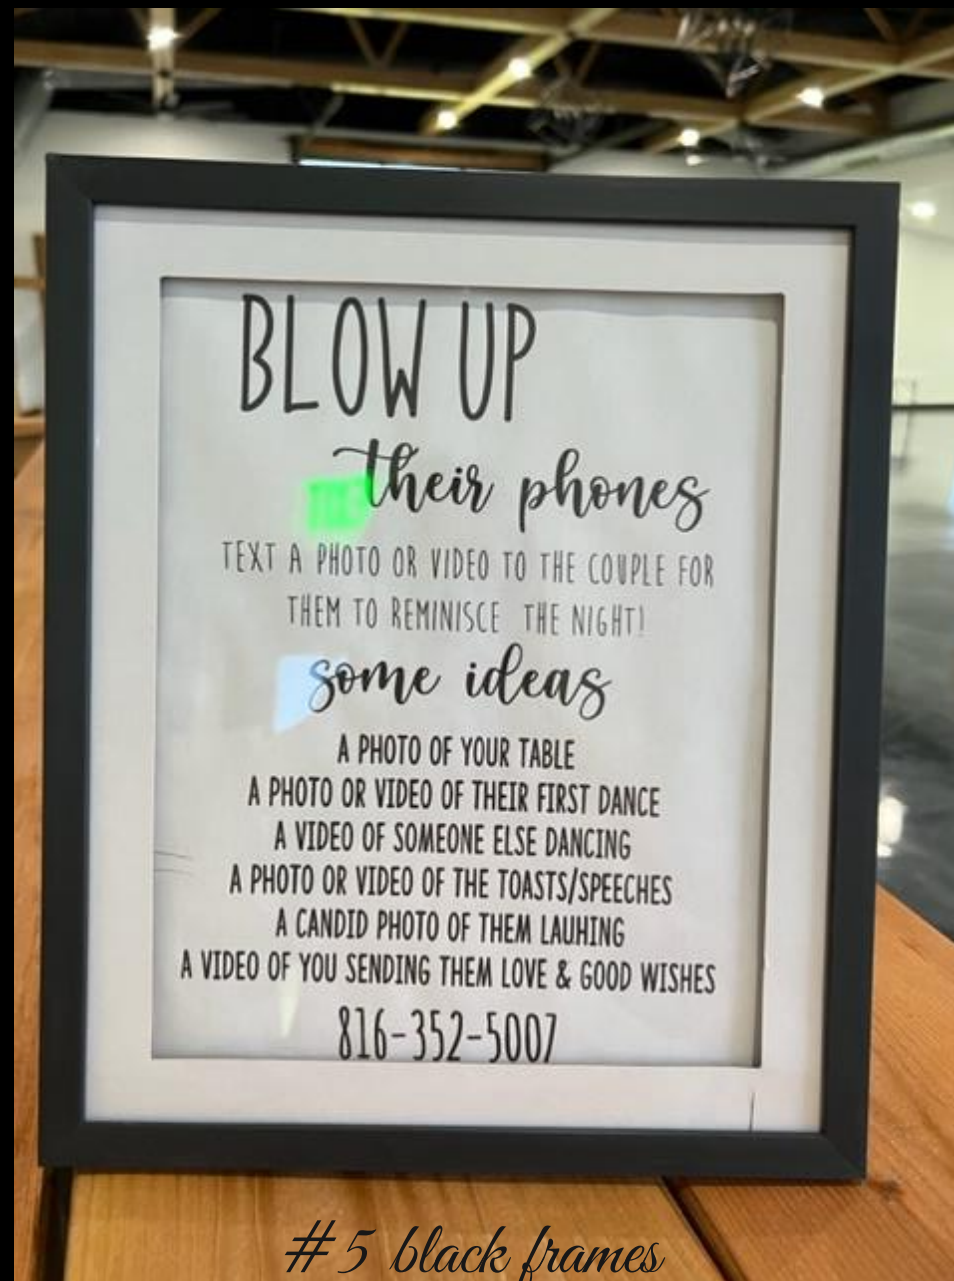 BLOW UP
their phones
TEXT A PHOTO OR VIDEO TO THE COUPLE FOR
THEM TO REMINISCE THE NIGHT!
some ideas
A PHOTO OF YOUR TABLE
A PHOTO OR VIDEO OF THEIR FIRST DANCE
A VIDEO OF SOMEONE ELSE DANCING
A PHOTO OR VIDEO OF THE TOASTS/SPEECHES
A CANDID PHOTO OF THEM LAUHING
A VIDEO OF YOU SENDING THEM LOVE & GOOD WISHES
816-352-5007
#5 black frames